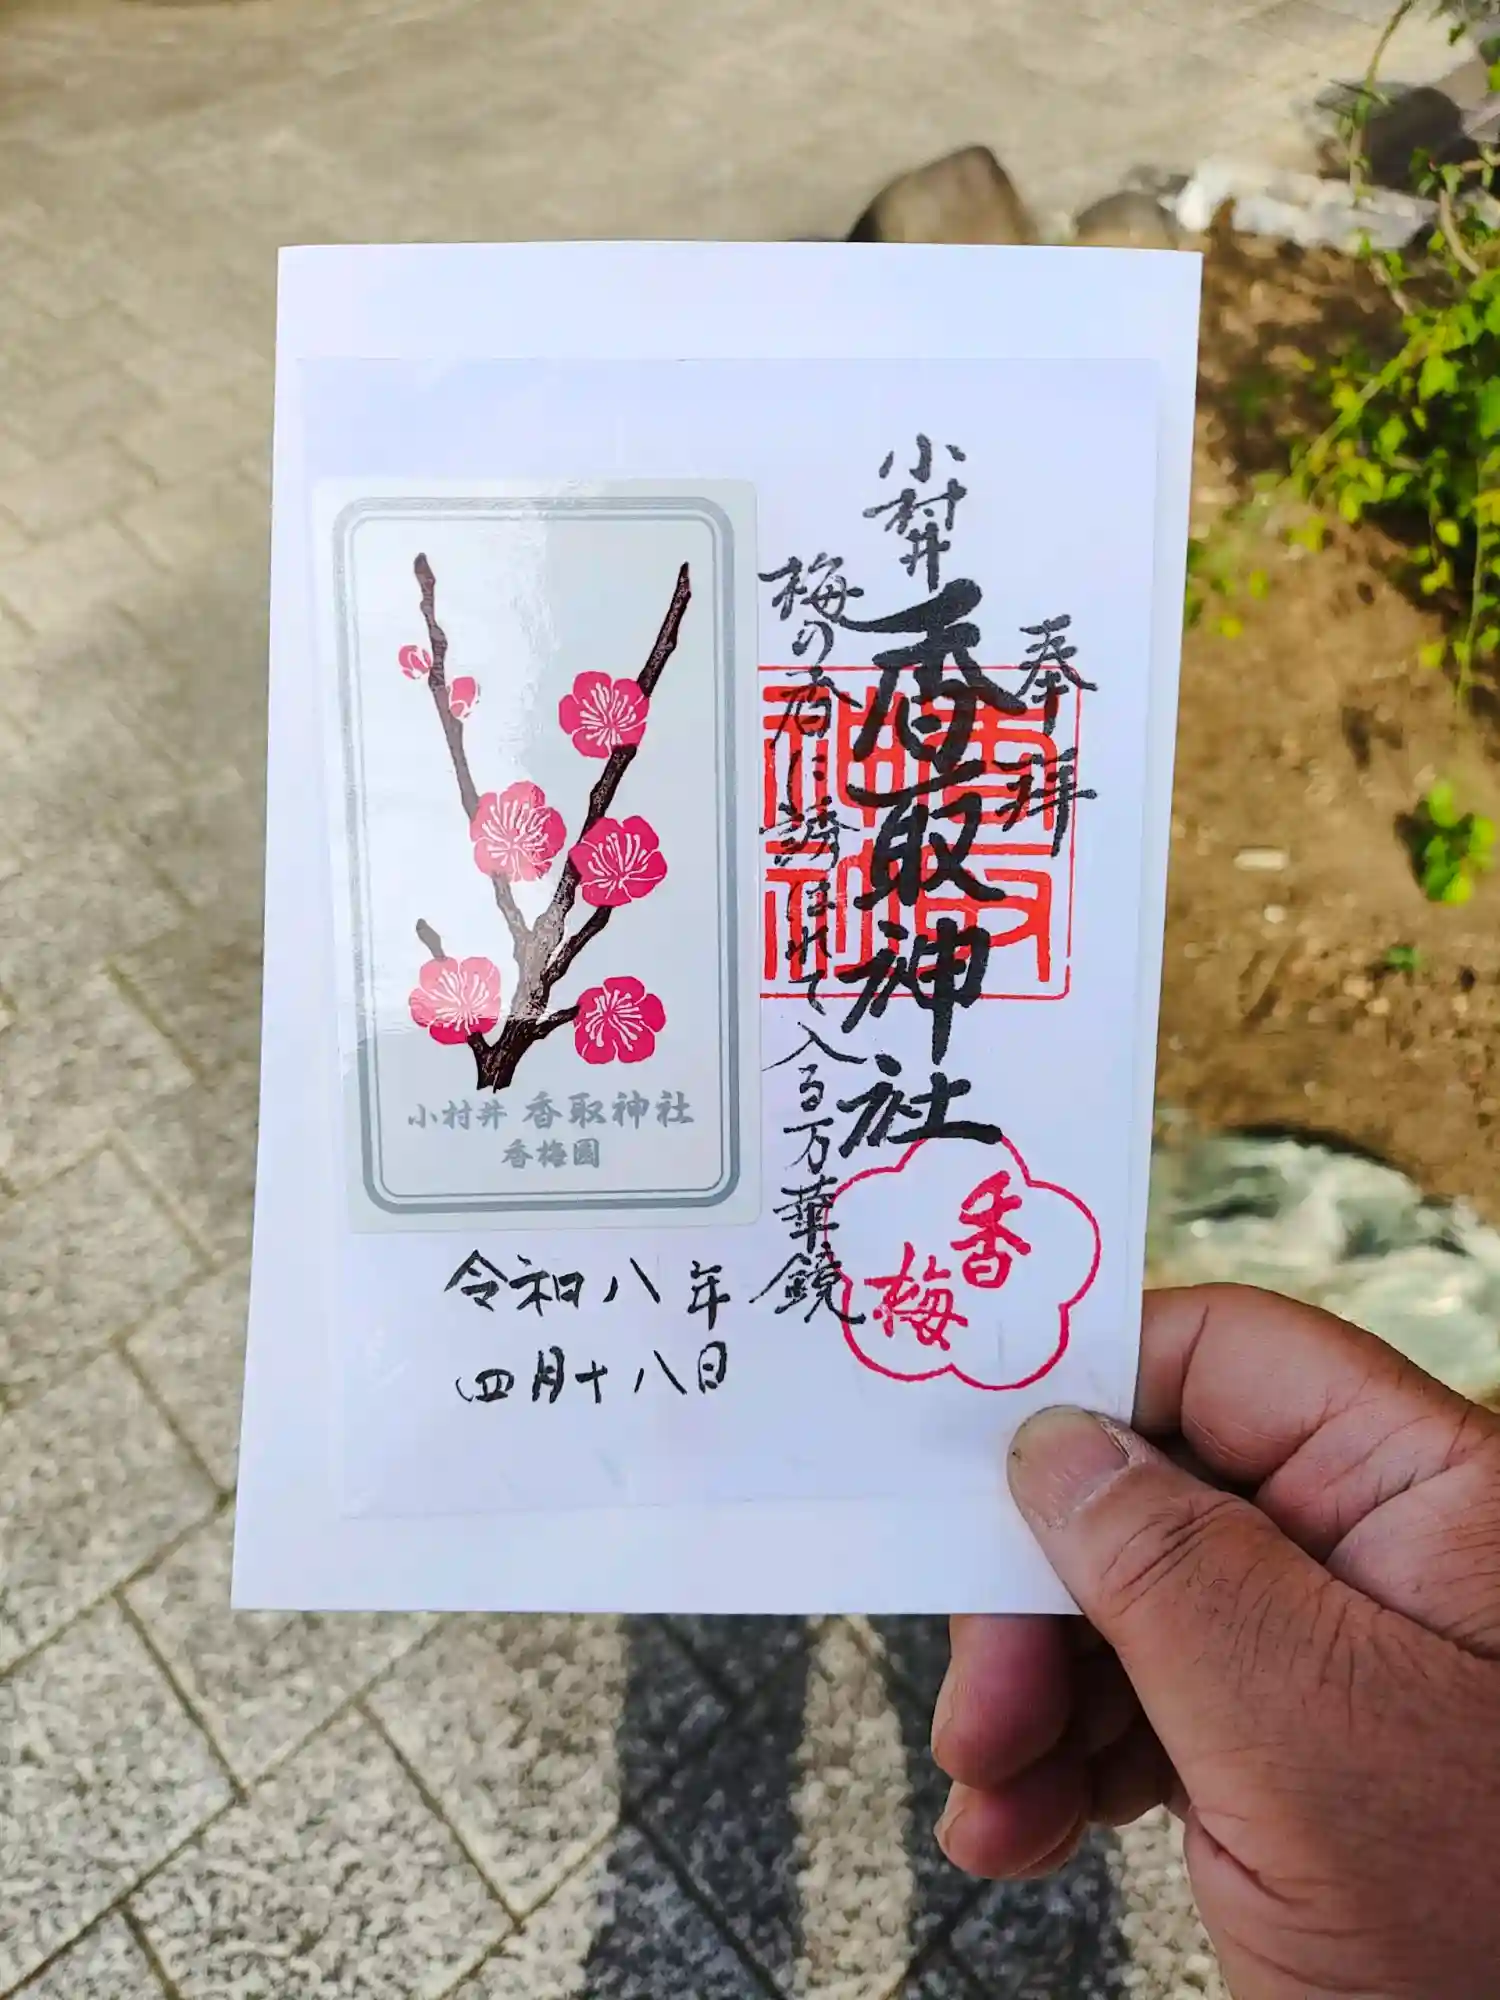 奉拝
小村井
香取神社
香取神社
梅の香に誘はれて入る万華鏡
香梅
小村井 香取神社
香梅園
令和八年
四月十八日